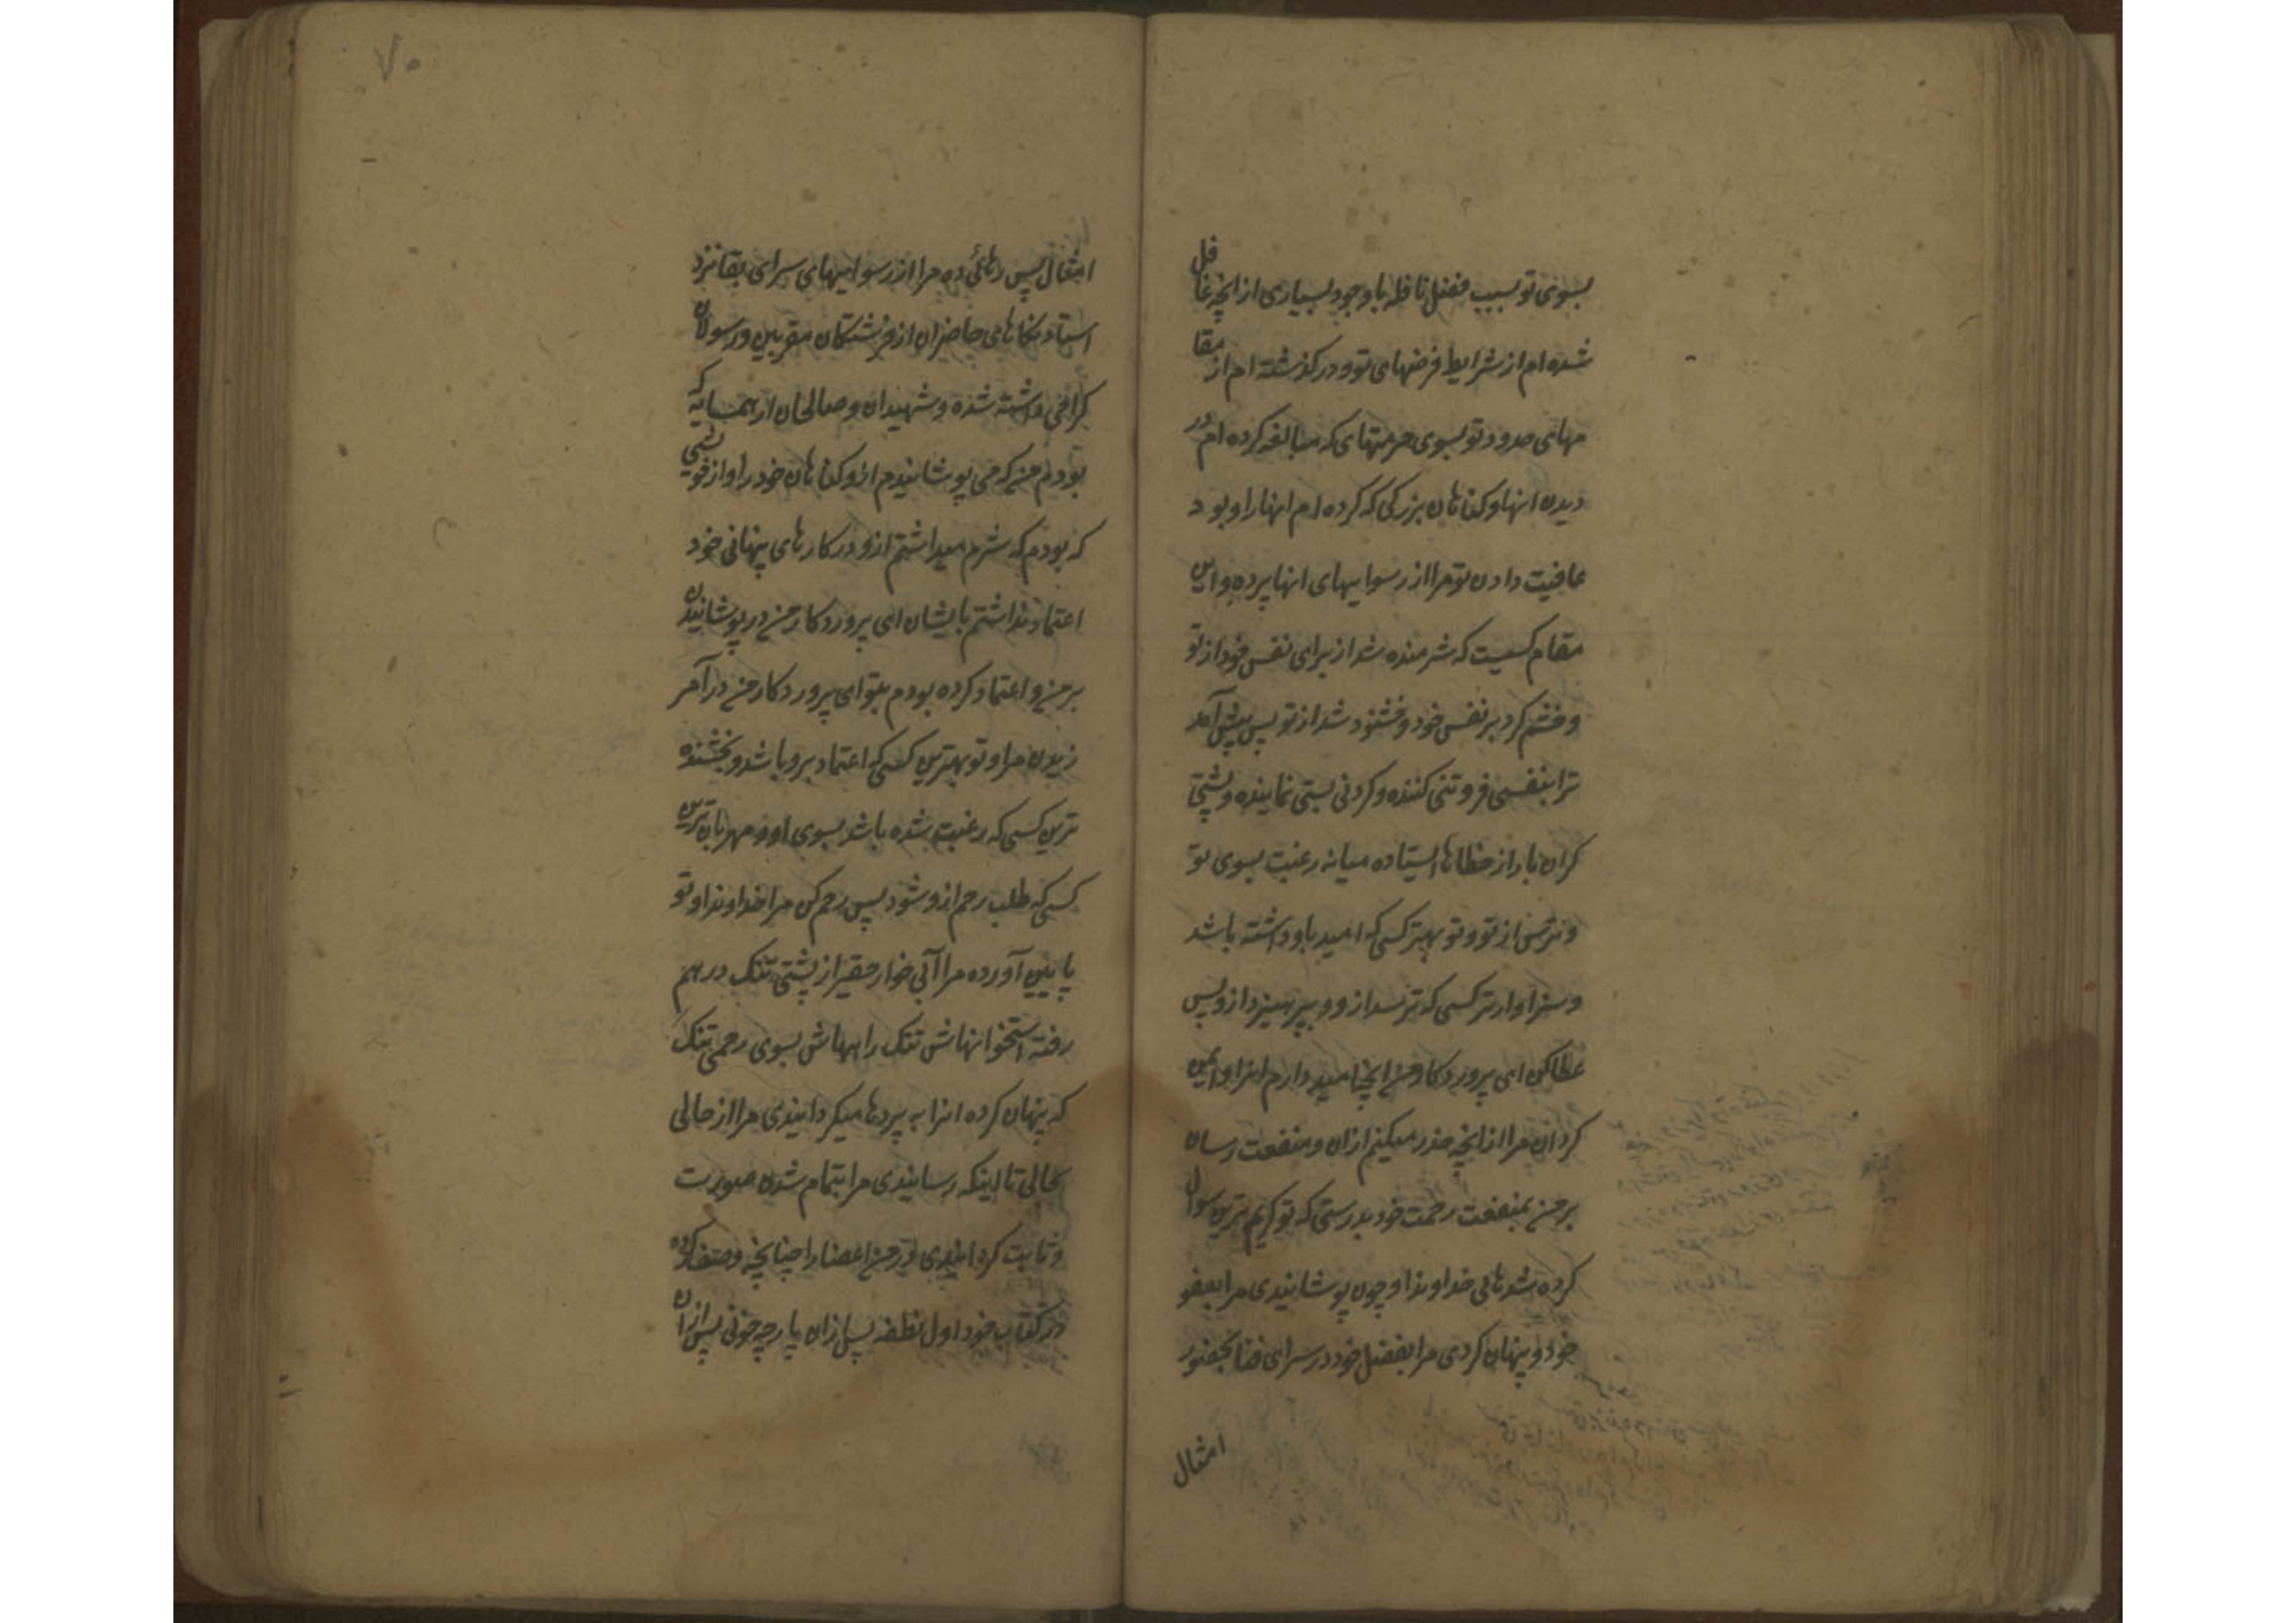 بسوی تو بسبب فضل نافله با وجود بسیاری از انچه غافل
شده ام از شرایط فرضهای تو و در گذشته ام از مقا
مهای حدود تو بسوی حرمتهای که مبالغه کرده ام در
دیدن انها و کناهان بزرکی که کرده ام انها را و بود
عافیت دادن تو مرا از رسواییهای انها پرده و این
مقام کسیت که شرمنده شد از برای نفس خود از تو
و خشم کرد بر نفس خود و خشنود شد از تو پس پیش آمد
ترا بنفسی فروتنی کننده و کردنی پستی نماینده و پشتی
کران بار از خطاها ایستاده میانه رغبت بسوی تو
و ترس از تو و تو بهتر کسی که امید باو داشته باشد
و سزاوارتر کسی که ترسد از و و بپرهیزد ازو پس
عطا کن ای پروردکار من انچه امید دارم انرا و ایمن
کردان مرا از انچه حذر میکنم ازان و منفعت رسان
بر من بمنفعت رحمت خود بدرستی که تو کریم ترین سوال
کرده شدهائی خداوندا و چون پوشانیدی مرا بعفو
خود و پنهان کردی مرا بفضل خود در سرای فنا بحضور
امثال
۷۰
امثال پس رهائی ده مرا از رسواییهای سرای بقا نزد
استادنکاهای حاضران از فرشتکان مقربین و رسولان
کرامی داشته شده و شهیدان و صالحان از همسایه که
بودم من که می پوشانیدم ازو کناهان خود را و از خویشی
که بودم که شرم میداشتم ازو در کارهای پنهانی خود
اعتماد نداشتم بایشان ای پروردکار من در پوشانیدن
بر من و اعتماد کرده بودم بتو ای پروردکار من در آمر
زیدن مرا و تو بهترین کسی که اعتماد برو باشد و بخشنده
ترین کسی که رغبت شده باشد بسوی او و مهربان ترین
کسی که طلب رحم ازو شود پس رحم کن مرا خداوندا و تو
پایین آورده مرا آبی خوار حقیر از پشتی تنک در هم
رفته استخوانهاش تنک راههاش بسوی رحمی تنک
که پنهان کرده انرا به پردها میکردانیدی مرا از حالی
بحالی تا اینکه رسانیدی مرا بتمام شدن صورت
و ثابت کردانیدی در من اعضا را چنانچه وصف کرده
در کتاب خود اول نطفه پس ازان پارچه خونی پس ازان